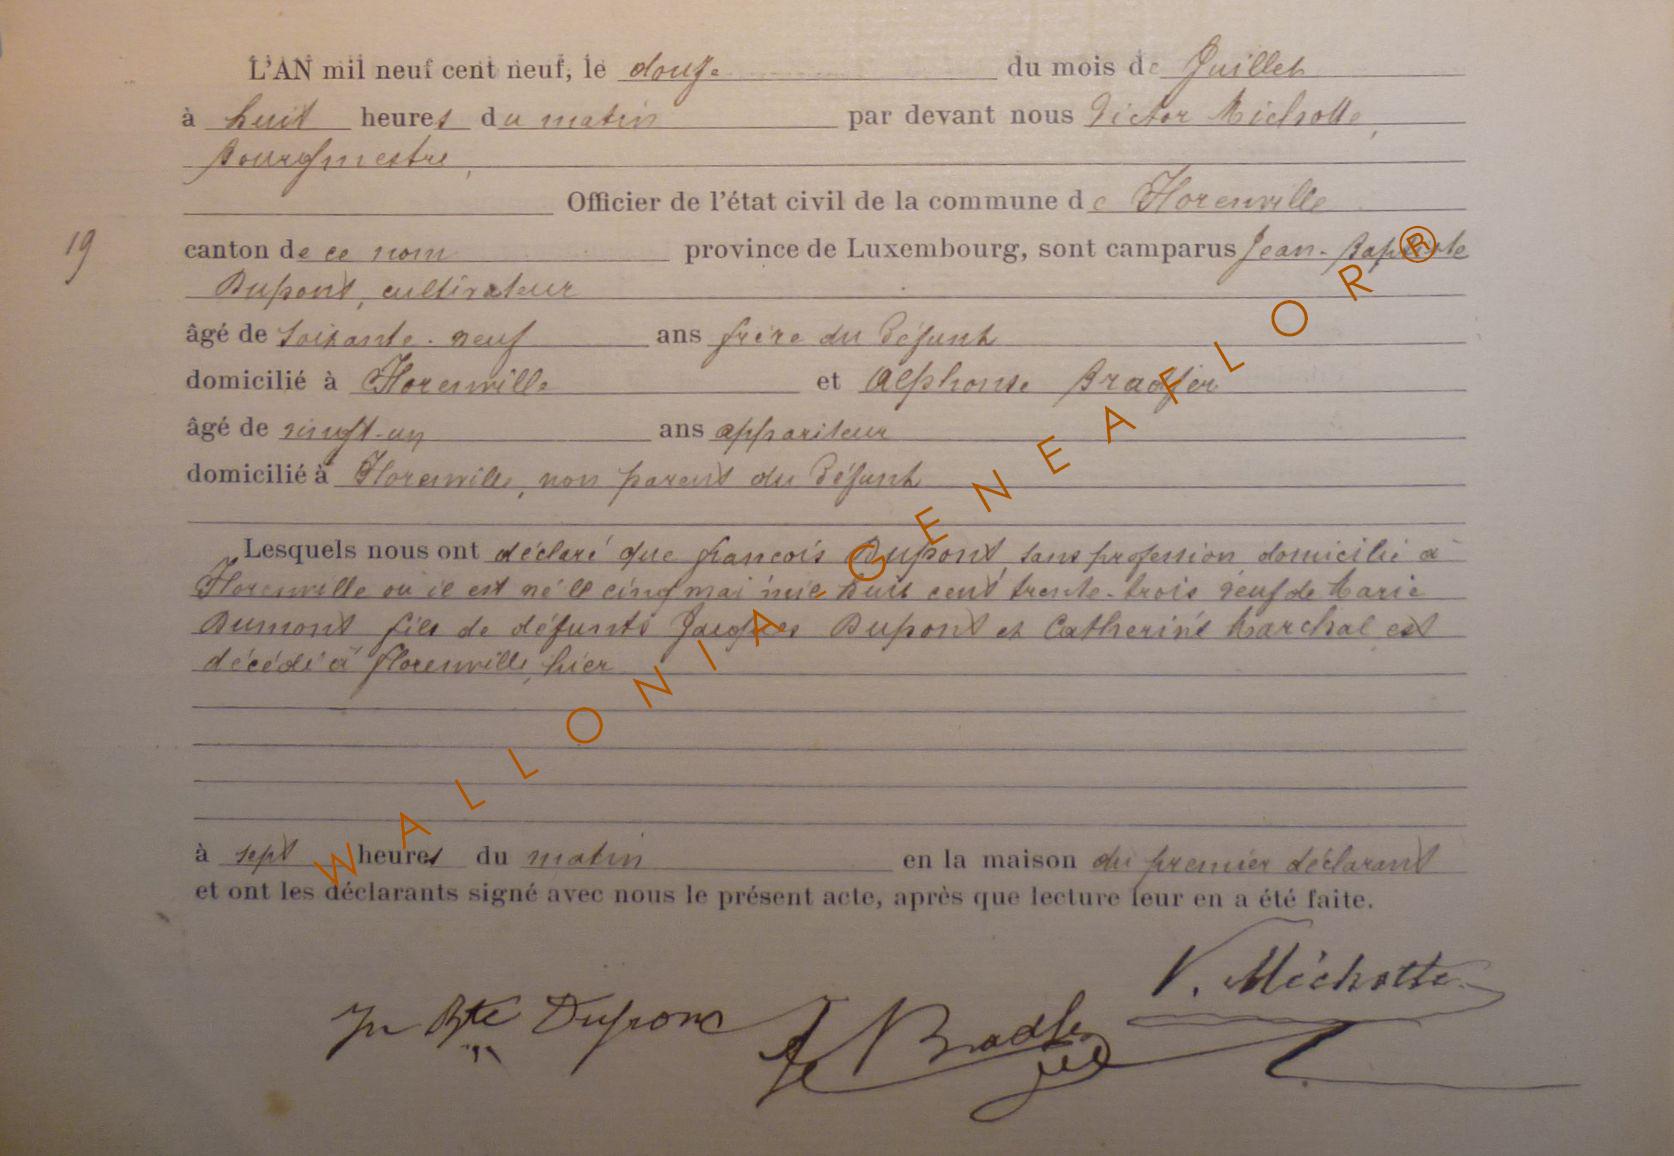 L'AN mil neuf cent neuf, le douze du mois de Juillet
à huit heures du matin par devant nous Victor Michotte,
Bourgmestre,
Officier de l'état civil de la commune de Florenville
19
canton de ce nom province de Luxembourg, sont camparus Jean-Baptiste
Dupont, cultivateur
âgé de soixante-neuf ans frère du défunt
domicilié à Florenville et Alphonse
âgé de vingt-un ans appariteur
domicilié à Florenville, non parent du défunt
Lesquels nous ont déclaré que françois Dupont, sans profession domicilié à
Florenville où il est né le cinq mai mil huit cent trente-trois veuf de Marie
Dumont fils de défunts Jacques Dupont et Catherine Marchal est
décédé à florenville, hier
à sept heures du matin en la maison du premier déclarant
et ont les déclarants signé avec nous le présent acte, après que lecture leur en a été faite.
V. Michotte
Jn Bte Dupont
WALLONIA GENEAFLOR®